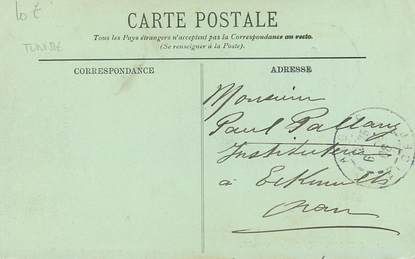 10 €
TUNISIE
CARTE POSTALE
Tous les Pays étrangers n'acceptent pas la Correspondance au recto.
(Se renseigner à la Poste).
CORRESPONDANCE
ADRESSE
Monsieur
Paul
Instituteur
à Eckmuhl
Oran